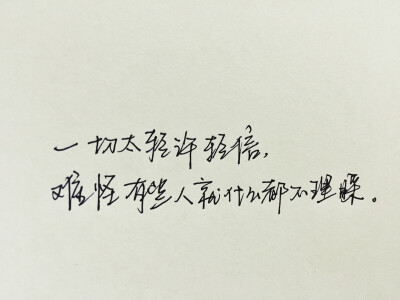 一切太轻许轻信,
难怪有些人就什么都不理睬。